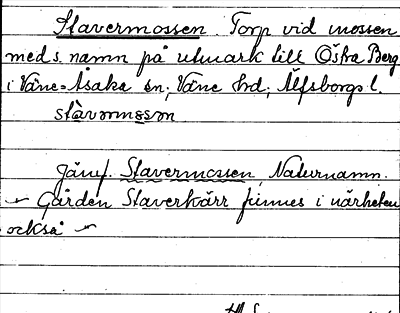 Stavermossen. Torp vid mossen
med s. namn på utmark till Östra Berg
i Väne-Åsaka sn; Väne hd; Älfsborgs l.
stàvərmåsən
Jämf. Stavermossen, Naturnamn.
~ Gården Staverkärr finnes i närheten
också ~